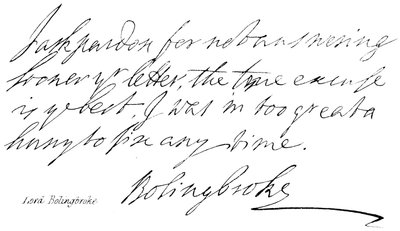 I ask pardon for not answering
sooner yr letter, the true excuse
is ye best, I was in too great a
hurry to fix any time.
Bolingbroke
Lord Bolingbroke